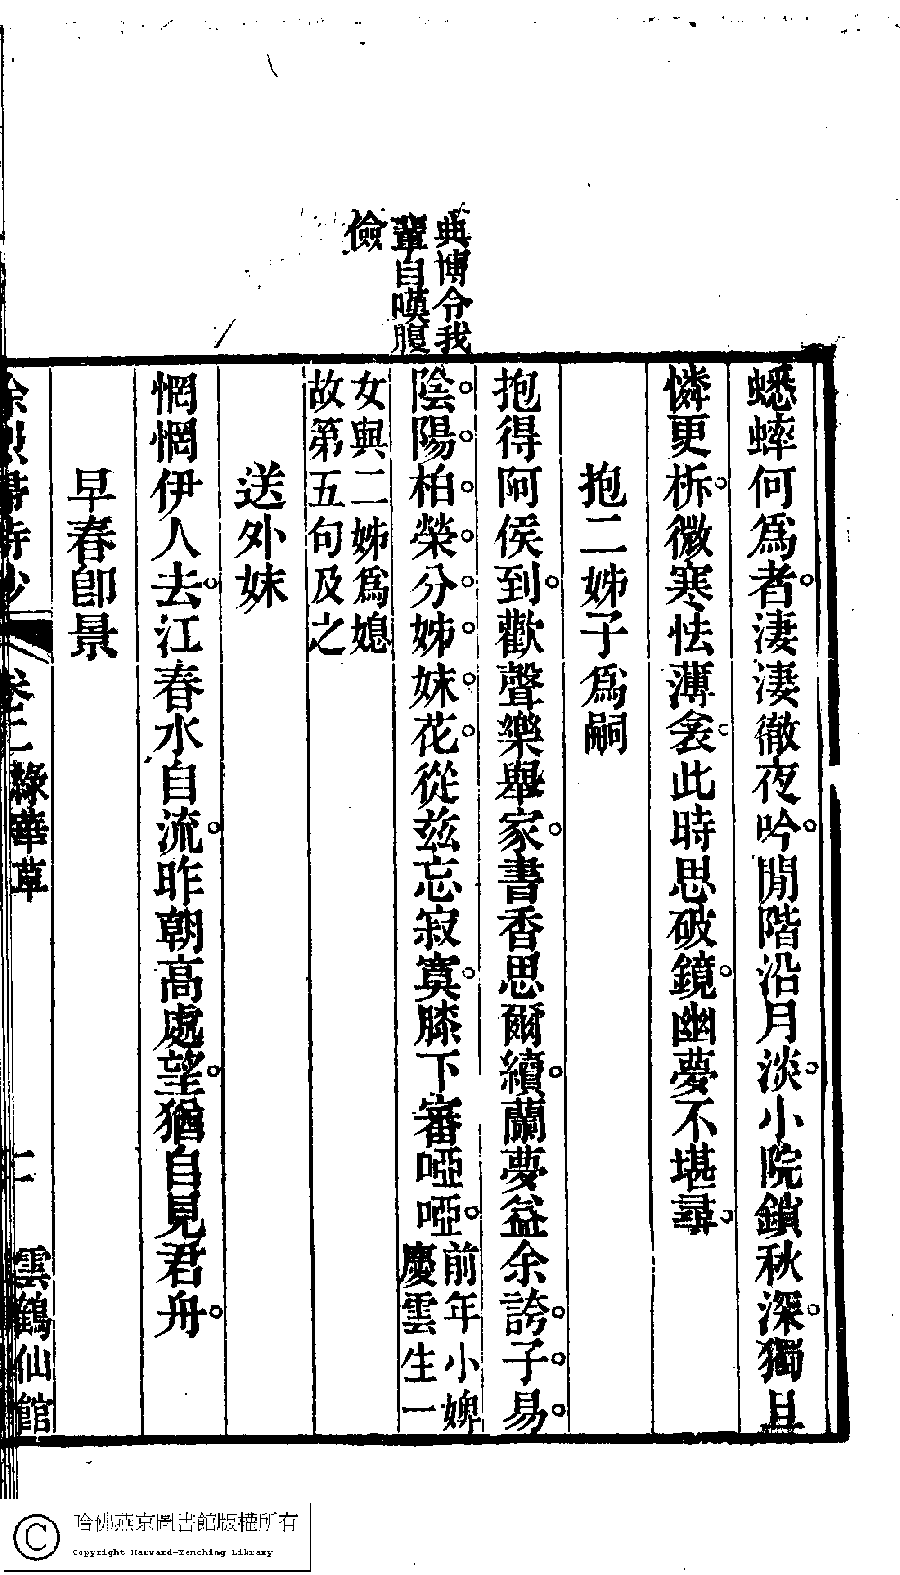 典博令我
輩自嘆腹
儉
蟋蟀何爲者淒淒徹夜吟閒階沿月淡小院鎖秋深獨且
憐更柝微寒怯薄衾此時思破鏡幽夢不堪尋
抱二姊子爲嗣
抱得阿侯到歡聲樂舉家書香思爾續蘭夢益余誇子易
陰陽柏榮分姊妹花從茲忘寂寞膝下審啞啞前年小婢
慶雲生一
女與二姊爲媳
故第五句及之
送外妹
惘惘伊人去江春水自流昨朝高處望猶自見君舟
早春卽景
卷二 綠華草
二
雲鶴仙館
哈佛燕京圖書館版權所有
Copyright Harvard-Yenching Library